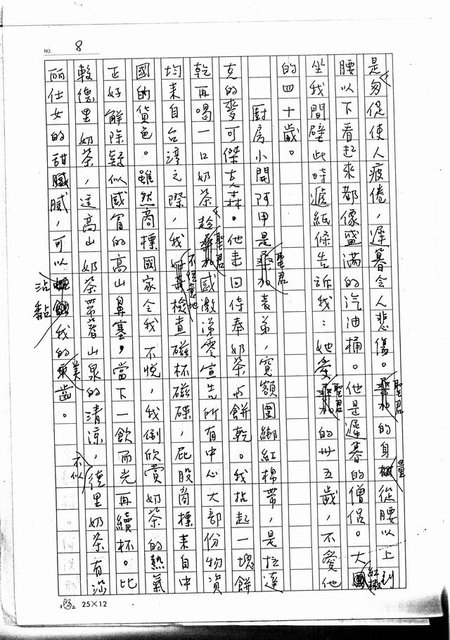 NO. 8
是匆促使人疲倦，遲暮令人悲傷。聖君的身量從腰以上到
腰以下看起來都像盛滿的汽油桶。他是遲暮的僧侶。大紅
坐我間壁此時遞紙條告訴我：她愛聖君的卅五歲，不愛他
的四十歲。
廚房小開阿甲是聖君表弟，寬額圍綁紅棉帶，是拉達
克的麥可傑克森。他來回侍奉奶茶与餅乾。我拈起一塊餅
乾再喝一口奶茶趁聖君感激涕零宣告所有中心大部份物資
均來自台灣之際，我不經意地檢查磁杯磁碟，屁股商標來自中
國的貨色。雖然商標國家令我不悅，我倒欣賞奶茶的熱氣
正好解除疑似感冒的高山鼻塞，當下一飲而光再續杯。比
較德里奶茶，這高山奶茶帶著山泉的清涼，不似德里奶茶有莎
丽仕女的甜膩膩，可以沾黏我的美齒。
25×12